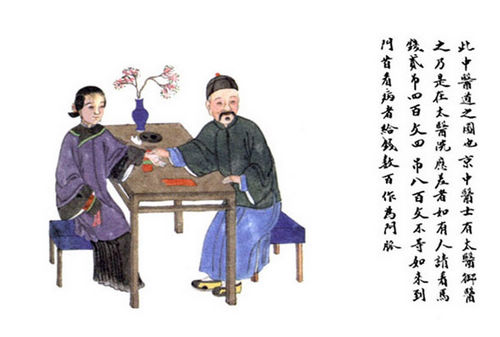 此中醫道之圖也京中醫士有太醫御醫
之乃是在太醫院應差者如有人請看馬
錢貳吊四百文四吊八百文不等如來到
門首看病者給錢數百作為門脉